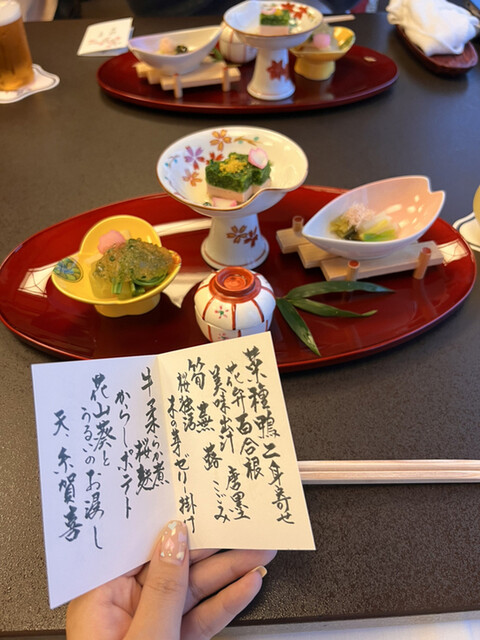 菜種鴨二身寄せ
花弁百合根 唐墨
美味出汁 こごみ
筍 蕪 蕗
桜独活
木の芽ゼリー掛け
牛柔らか煮
桜麩
からしポテト
花山葵と
うるいのお浸し
天、糸賀喜